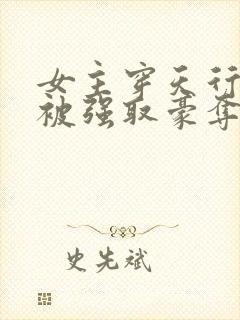 女主穿天行
被强取豪夺
史先斌